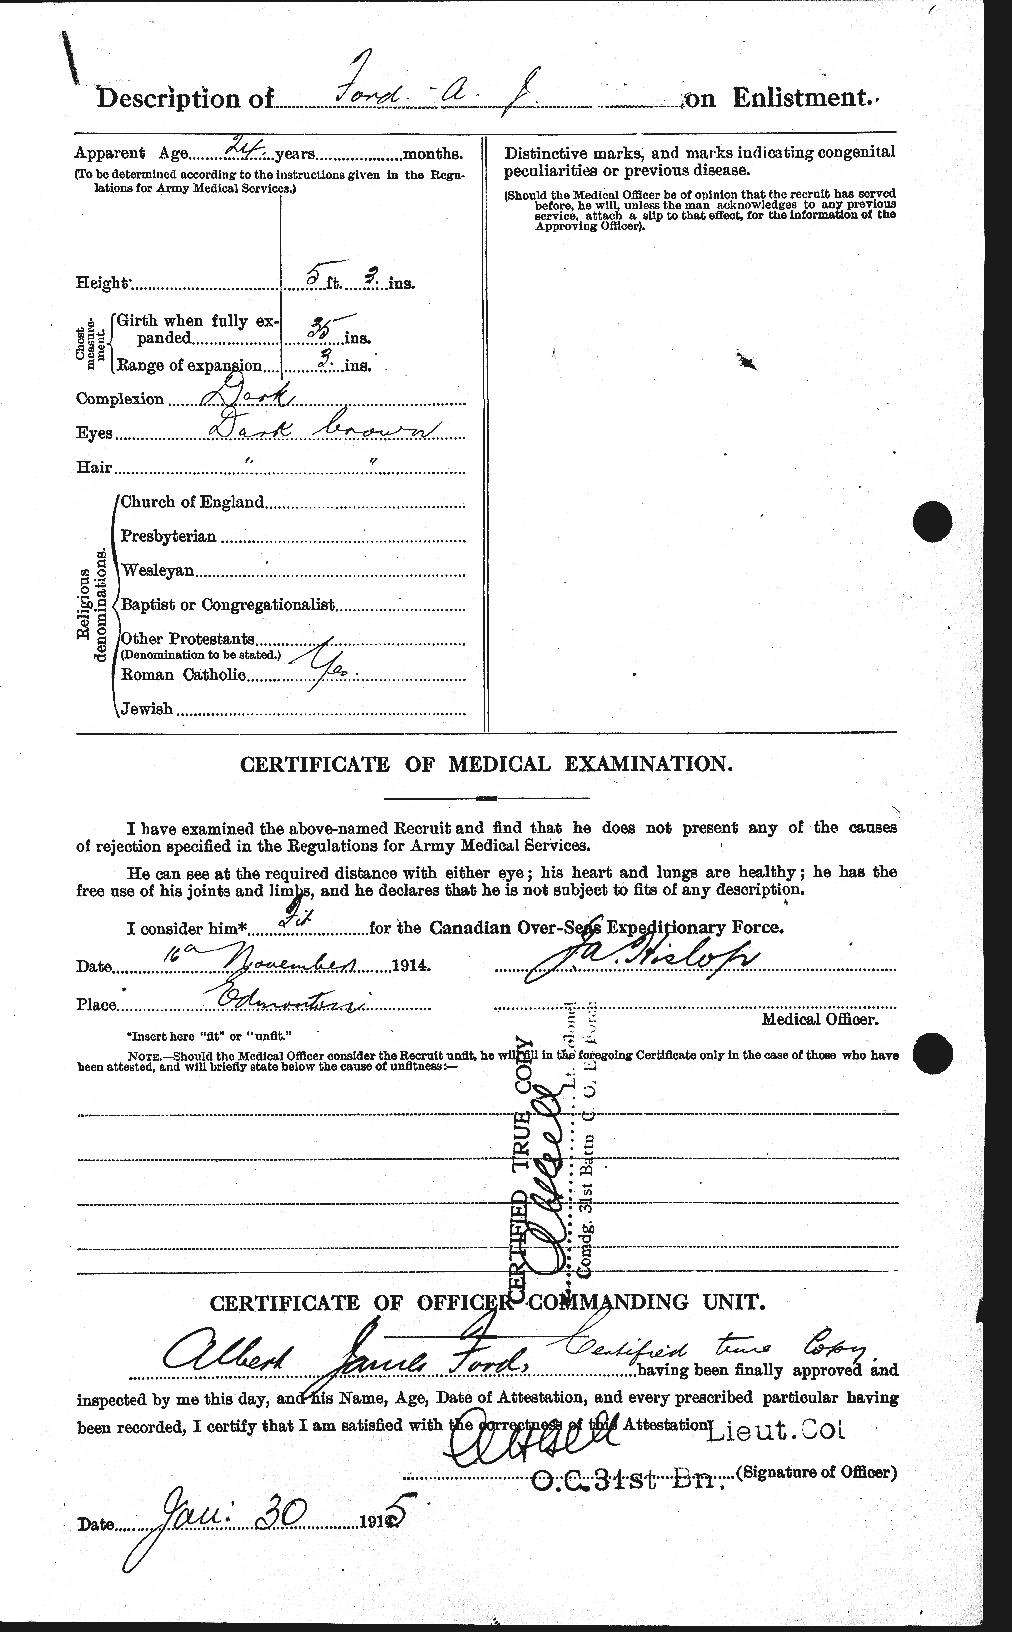 Description of Ford A. J. on Enlistment.
Apparent Age 24 years months.
(To be determined according to the instructions given in the Regu-
lations for Army Medical Services.)
Height 5 ft. 3 ins.
Chest measure-ment.
Girth when fully ex-
panded 35 ins.
Range of expansion 3 ins.
Complexion Dark
Eyes Dark brown
Hair " "
Religious denominations.
Church of England
Presbyterian
Wesleyan
Baptist or Congregationalist
Other Protestants
(Denomination to be stated.)
Roman Catholic Yes.
Jewish
Distinctive marks, and marks indicating congenital
peculiarities or previous disease.
(Should the Medical Officer be of opinion that the recruit has served
before, he will, unless the man acknowledges to any previous
service, attach a slip to that effect, for the information of the
Approving Officer).
CERTIFICATE OF MEDICAL EXAMINATION.
I have examined the above-named Recruit and find that he does not present any of the causes
of rejection specified in the Regulations for Army Medical Services.
He can see at the required distance with either eye; his heart and lungs are healthy; he has the
free use of his joints and limbs, and he declares that he is not subject to fits of any description.
I consider him* Fit for the Canadian Over-Seas Expeditionary Force.
Date November 1914.
Hislop
Place Edmonton
Medical Officer.
*Insert here "fit" or "unfit."
NOTE.—Should the Medical Officer consider the Recruit unfit, he will fill in the foregoing Certificate only in the case of those who have
been attested, and will briefly state below the cause of unfitness:—
CERTIFIED TRUE COPY
Lt. Colonel
Comdg. 31st Battn C. O. E. Force
CERTIFICATE OF OFFICER COMMANDING UNIT.
Certified true Copy
Albert James Ford, having been finally approved and
inspected by me this day, and his Name, Age, Date of Attestation, and every prescribed particular having
been recorded, I certify that I am satisfied with the correctness of this Attestation.
Lieut. Col
O.C. 31st Bn. (Signature of Officer)
Date Jan: 30 1915